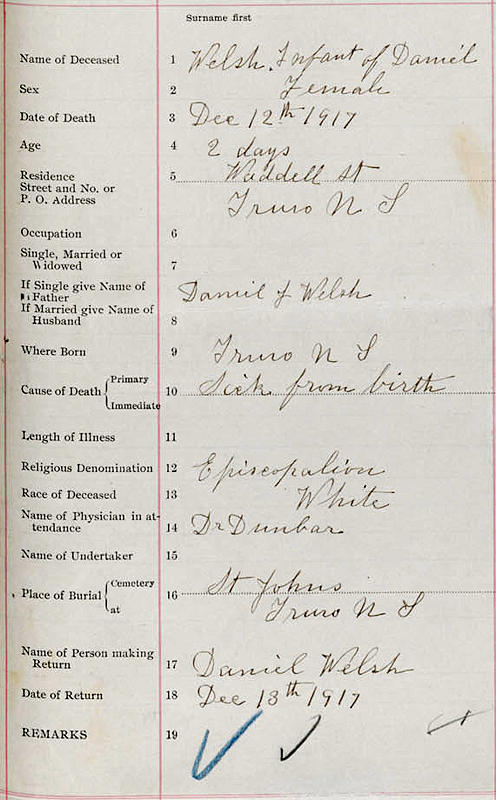 Surname first
Name of Deceased 1 Welsh. Infant of Daniel
Sex 2 Female
Date of Death 3 Dec 12th 1917
Age 4 2 days
Residence 5 Waddell St
Street and No. or
P. O. Address Truro N S
Occupation 6
Single, Married or
Widowed 7
If Single give Name of
Father Daniel J Welsh
If Married give Name of
Husband 8
Where Born 9 Truro N S
Cause of Death { Primary
Immediate 10 Sick from birth
Length of Illness 11
Religious Denomination 12 Episcopalion
Race of Deceased 13 White
Name of Physician in at-
tendance 14 Dr Dunbar
Name of Undertaker 15
Place of Burial { Cemetery 16 St Johns
at Truro N S
Name of Person making
Return 17 Daniel Welsh
Date of Return 18 Dec 13th 1917
REMARKS 19